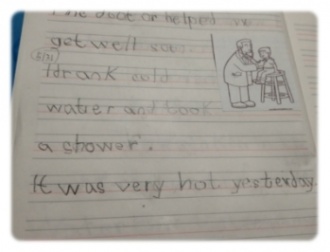 The doctor helped me
get well soon.
I drank cold
water and took
a shower.
It was very hot yesterday